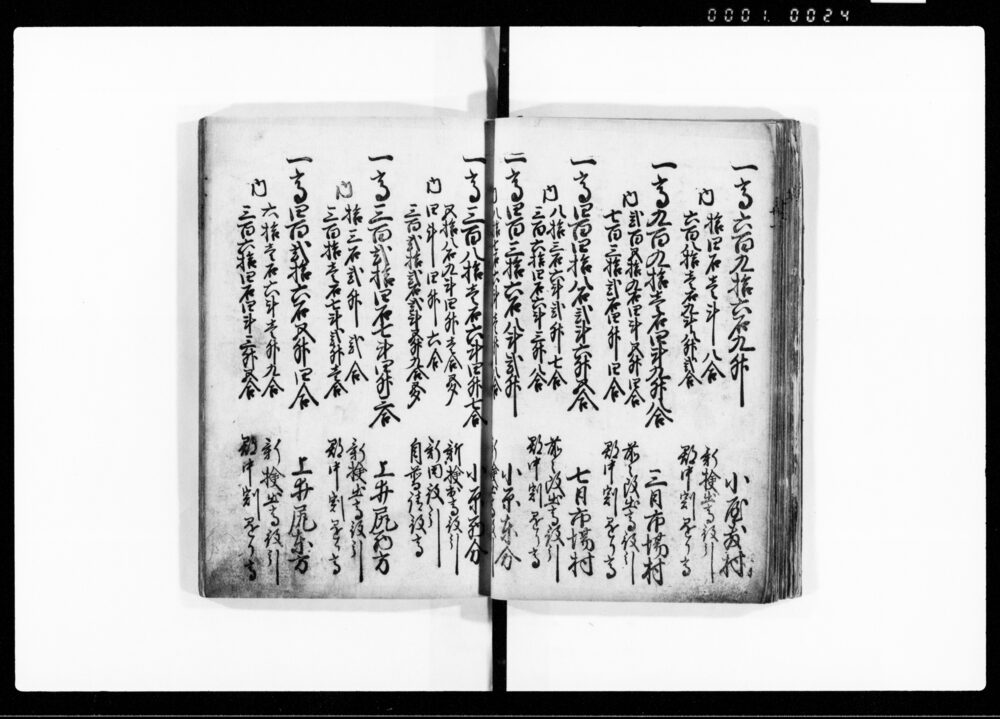 0001.0024
一高六百九拾六石九升 小屋敷村
内 拾四石壱斗八合 新検出高
六百八拾壱石九斗八升弐合 郡中割掛り高
一高九百九拾壱石四斗九升八合 三日市場村
内 弐百五拾九石四斗五升四合 前々改出高
七百三拾弐石四升四合 郡中割掛り高
一高四百四拾八石弐斗六升五合 七日市場村
内 八拾三石六斗弐升七合 前々改出高
三百六拾四石六斗三升八合 郡中割掛り高
一高四百三拾六石八斗弐升 小原東分
一高三百八拾壱石六斗四升七合 小原西分
五拾八石九斗四升壱合五夕 新検出高
内 四斗四升六合 新田
三百弐拾弐石弐斗五升九合五夕
一高三百弐拾四石七斗四升三合 上井尻西方
内 拾三石弐升弐合 新検出高
三百拾壱石七斗弐升壱合 郡中割掛り高
一高四百弐拾六石五升四合 上井尻東方
内 六拾壱石六斗壱升九合 新検出高
三百六拾四石四斗三升五合 郡中割掛り高